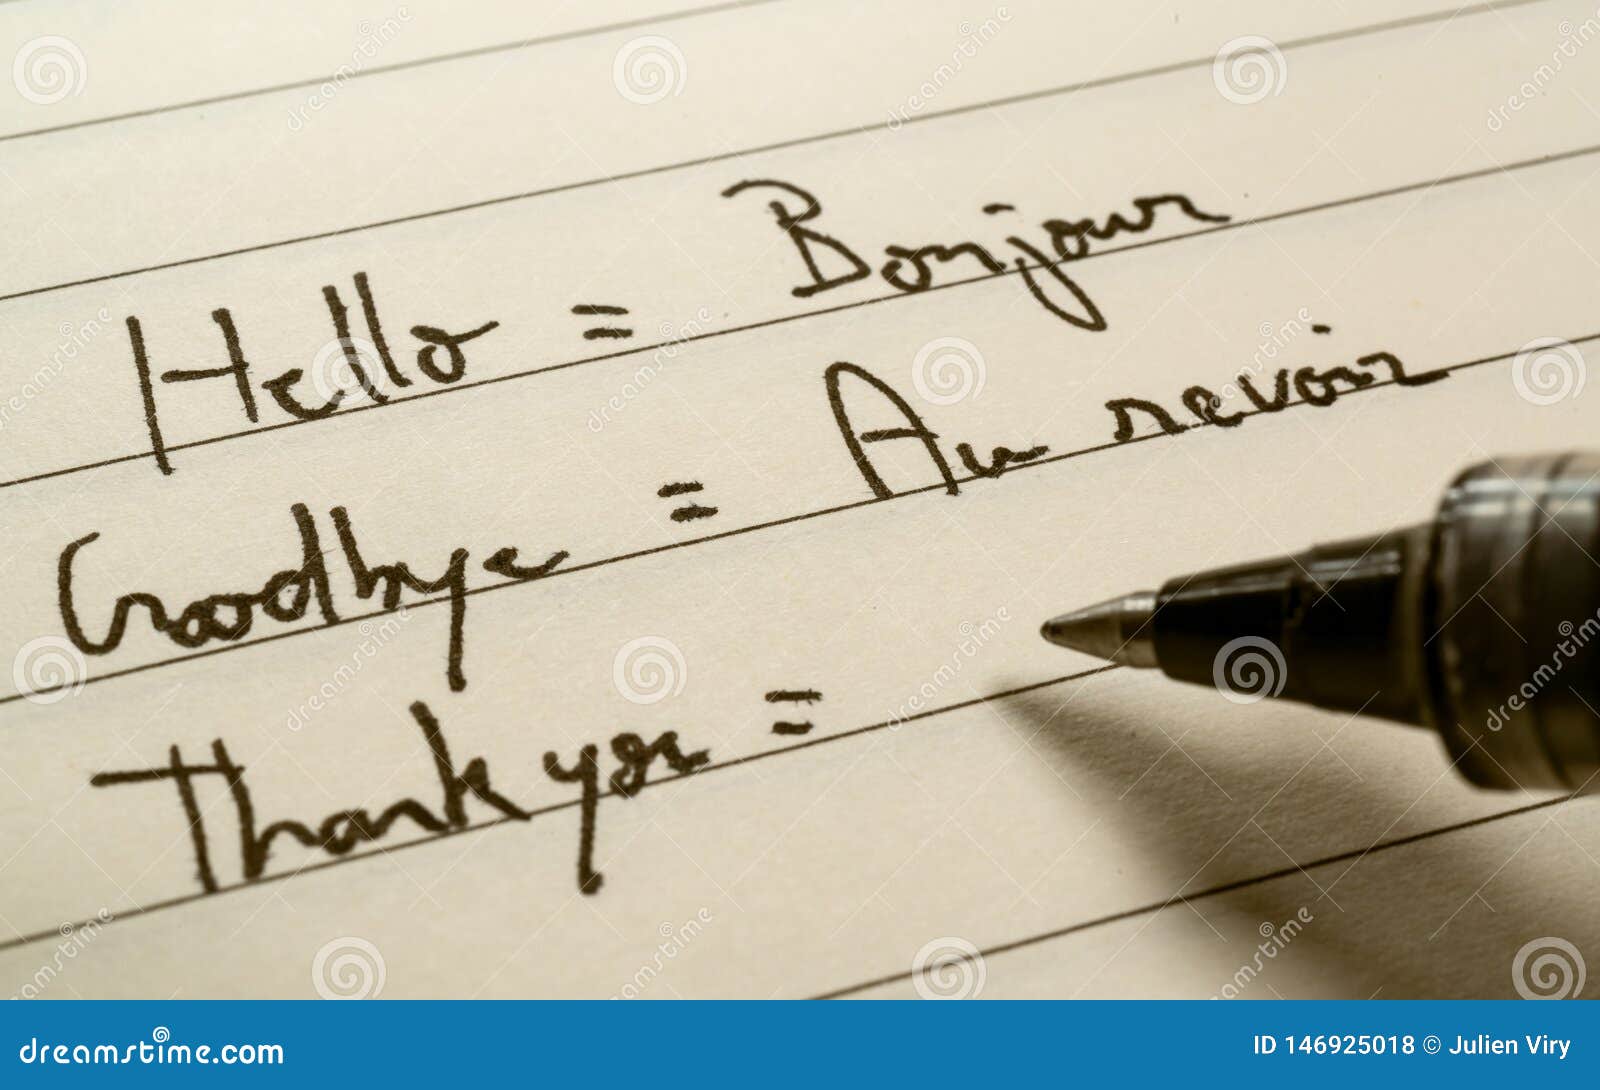 Hello = Bonjour
Goodbye = Au revoir
Thank you =
dreamstime.com
ID 146925018 © Julien Viry